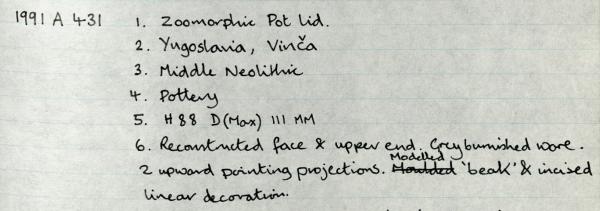 1991 A 431 1. Zoomorphic Pot Lid.
2. Yugoslavia, Vinča
3. Middle Neolithic
4. Pottery
5. H 88 D (Max) 111 MM
6. Reconstructed face & upper end. Grey burnished ware.
2 upward pointing projections. Modelled 'beak' & incised
linear decoration.